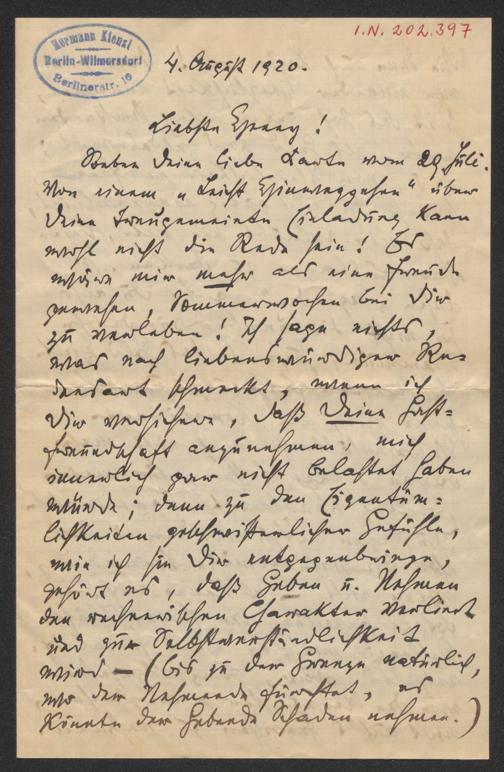 I.N. 202.397
Hermann Kienzl
Berlin-Wilmersdorf
Berlinerstr. 10
4. August 1920.
Liebste Jenny!
Soeben Deine liebe Karte vom 29. Juli.
Von einem „Leicht Hinweggehen“ über
Deine treugemeinte Einladung kann
wohl nicht die Rede sein! Es
wäre mir mehr als eine Freude
gewesen, Sommerwochen bei Dir
zu verleben! Ich sage nichts,
was nach liebenswürdiger Re-
densart schmeckt, wenn ich
Dir versichere, daß Deine Gast-
freundschaft anzunehmen, mich
innerlich gar nicht belastet haben
würde; denn zu den Eigentüm-
lichkeiten geschwisterlicher Gefühle,
wie ich sie Dir entgegenbringe,
gehört es, daß Geben u. Nehmen
den rechnerischen Charakter verliert
und zur Selbstverständlichkeit
wird – (bis zu der Grenze natürlich,
wo der Nehmende fürchtet, es
könnte der Gebende Schaden nehmen.)